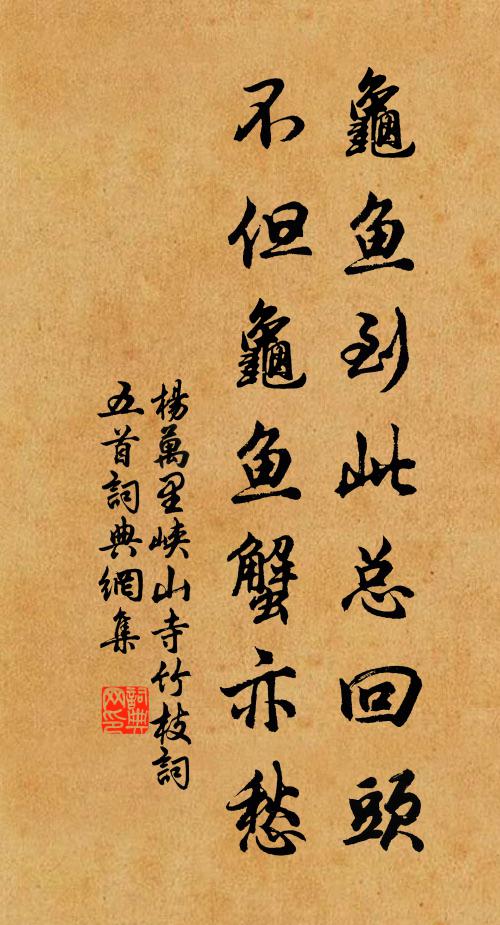 龜鱼到此总回頭
不但龜鱼蟹亦愁
楊萬里峡山寺竹枝詞
五首詞典網集
詞典
网印